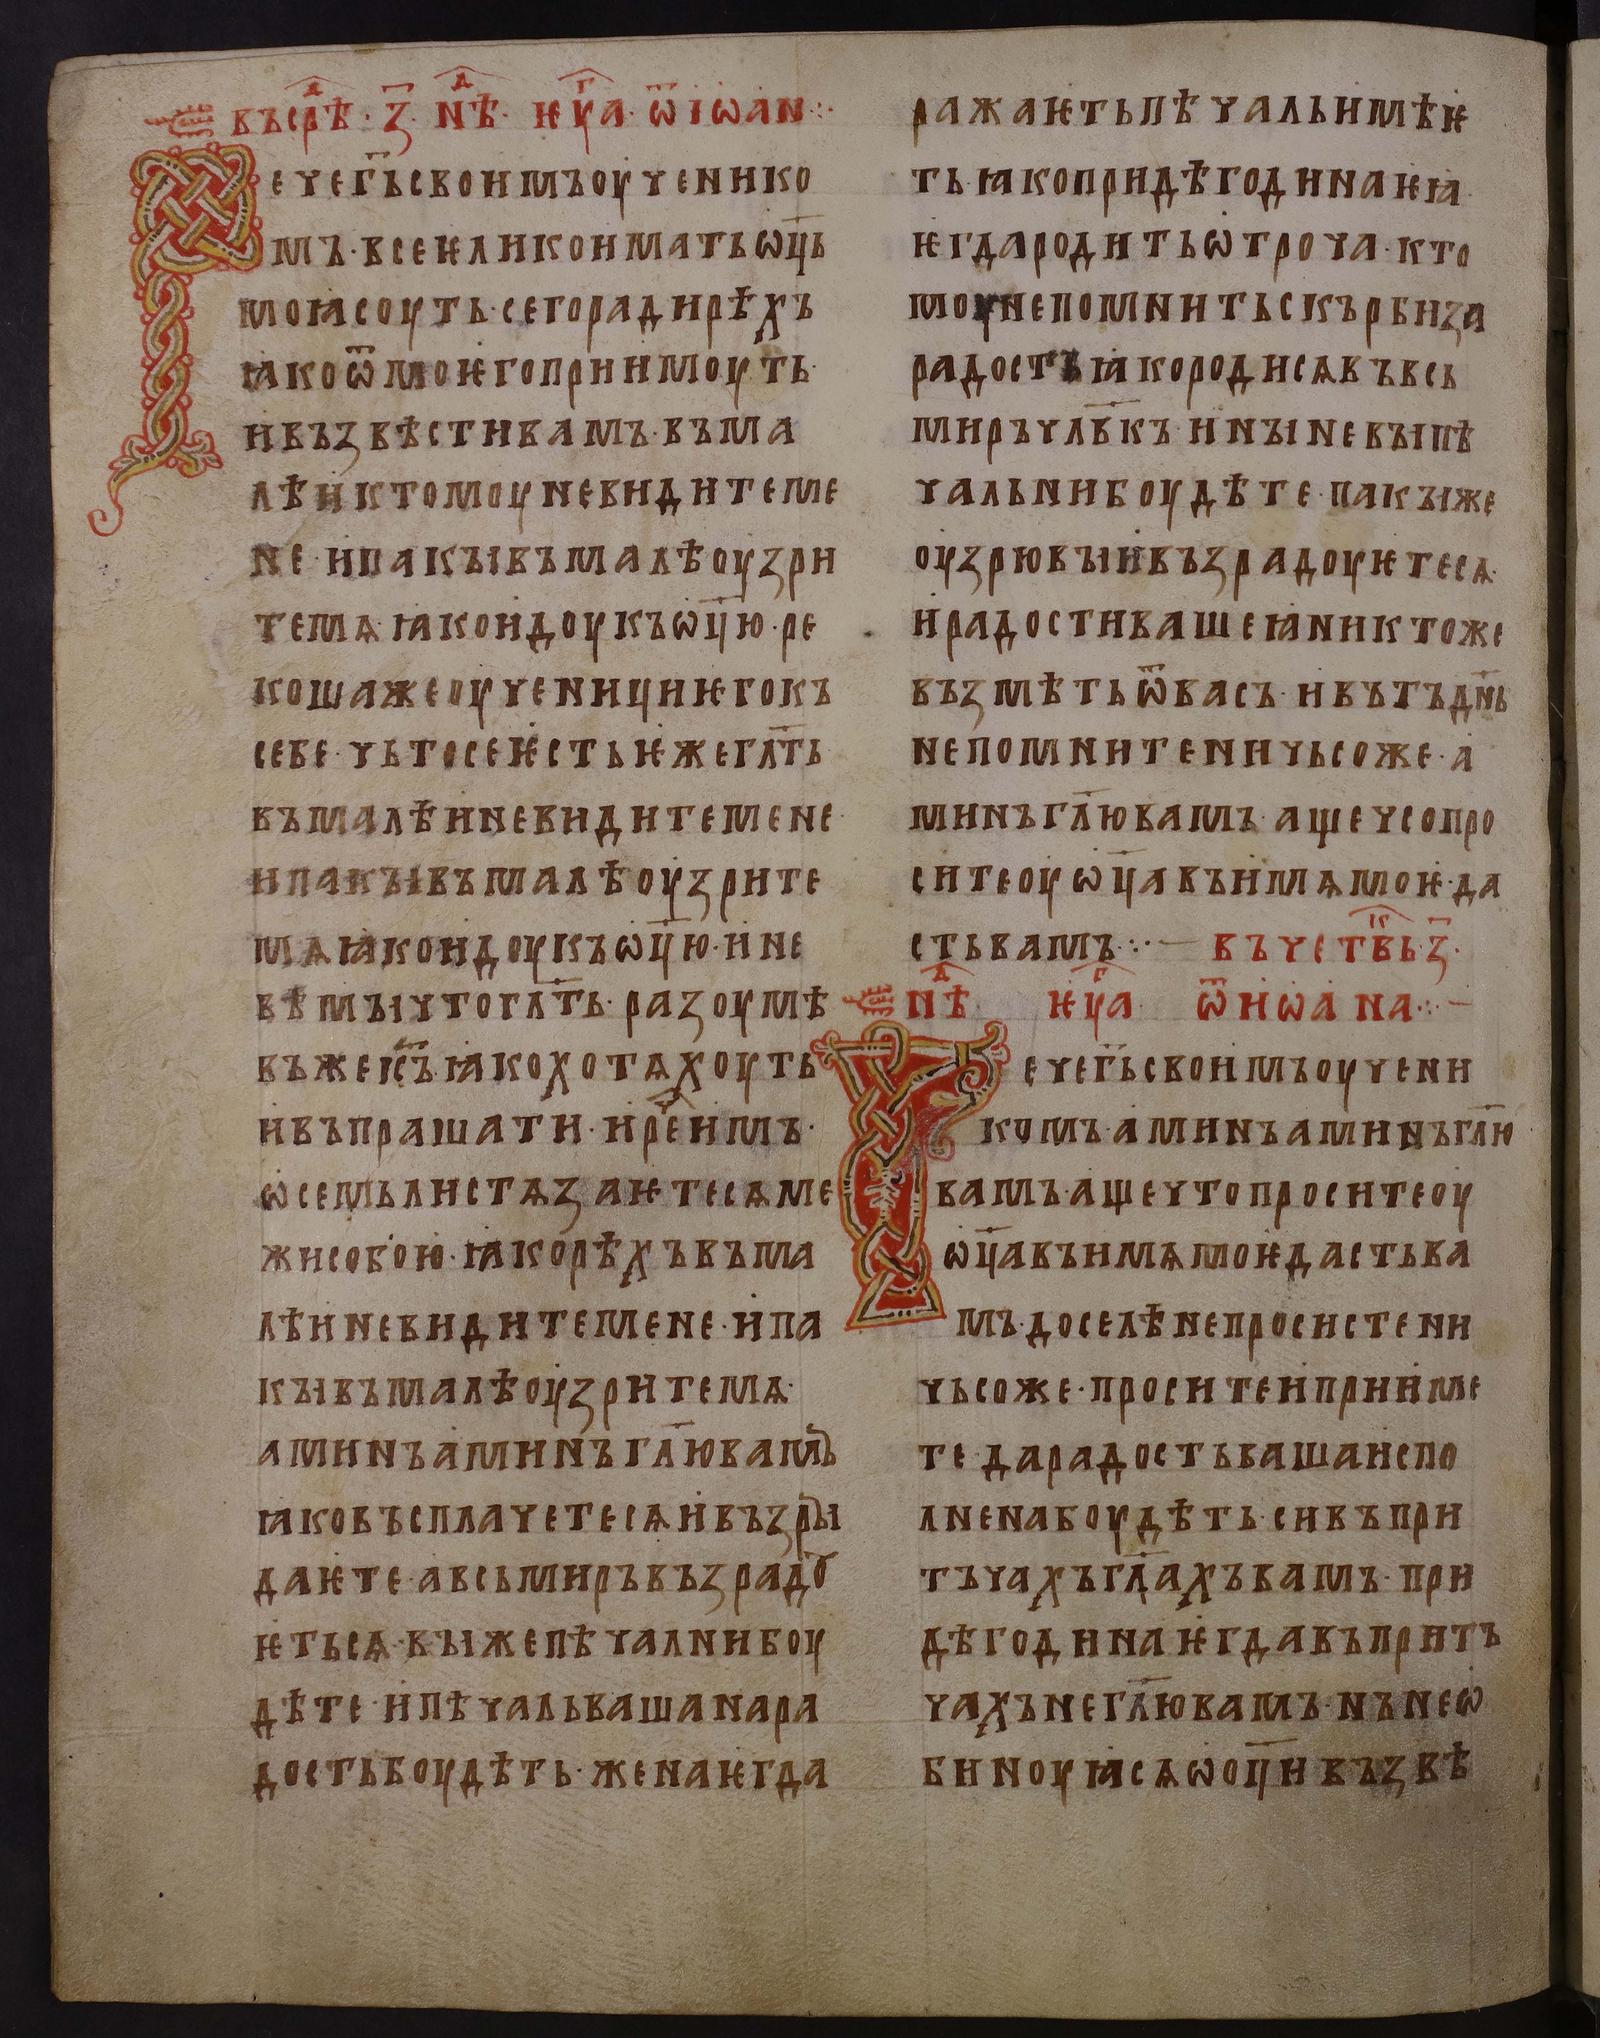 въсрⷣѣ· з҃· нⷣѣ· ѥуⷢ҇а· ѿ іѡан·:·
Рече г҃ьсвоимъоученико
мъ·всеѥликоиматьѡц҃ь
моꙗсоуть·сегорадирѣхъ
ꙗкоѿмоѥгоприимоуть·
ивъзвѣститвамъ·въма
лѣиктомоуневидитеме
не·ипакꙑвъмалѣоузри
темѧ·ꙗкоидоукъѡц҃ю·ре
кошажеоученициѥгокъ
себе·чьтосеѥстьѥжегл҃ть·
въмалѣиневидитемене·
ипакꙑвъмалѣоузрите
мѧꙗкоидоукъѡц҃ю·ине
вѣмꙑчтогл҃ть·разоумѣ
въжеіс҃ъꙗкохотѧхоуть
ивъпрашати·ирⷱ҇еимъ·
ѡсемьлистѧзаѥтесѧме
жисобою·ꙗкорѣхъвъма
лѣиневидитемене·ипа
кꙑвъмалѣоузритемѧ·
аминъаминъгл҃ювамъ
ꙗковъсплачетесѧивъзрꙑ
даѥте·авсьмиръвъзрадꙋ
ѥтьсѧ·вꙑжепѣчалнибоу
дѣте·ипѣчальвашанара
достьбоудѣть·женаѥгда
ражаѥтьпѣчальимѣѥ
ть·ꙗкопридѣгодинаѥꙗ·
ѥгдародитьѡтроча·кто
моунепомнитьскърбиза
радостьꙗкородисѧвъвсь
миръчл҃вкъ·инꙑневꙑпѣ
чальнибоудѣте·пакꙑже
оузрювꙑивъзрадоуѥтесѧ·
ирадостивашеꙗниктоже
възмѣтьѿвасъ·ивътъдн҃ь
непомнитеничьсоже·а
минъгл҃ювамъ·ащечсопро
ситеоуѡц҃авъимѧмоѥ·да
стьвамъ·:·— въчетвⷦ҇ь·з҃·
нⷣѣ· ѥуⷢ҇а ѿиѡана·:·—
Рече г҃ьсвоимъоучени
комъ·аминъаминъгл҃ю
вамъ·ащечтопроситеоу
ѡц҃авъимѧмоѥдастьва
мъ·доселѣнепросистени
чьсоже·проситеиприиме
те·дарадостьвашаиспо
лненабоудѣть·сивъпри
тъчахъгл҃ахъвамъ·при
дѣгодинаѥгдавъпритъ
чахънегл҃ювамъ·нънеѡ
биноуꙗсѧѡоц҃ивъзвѣ